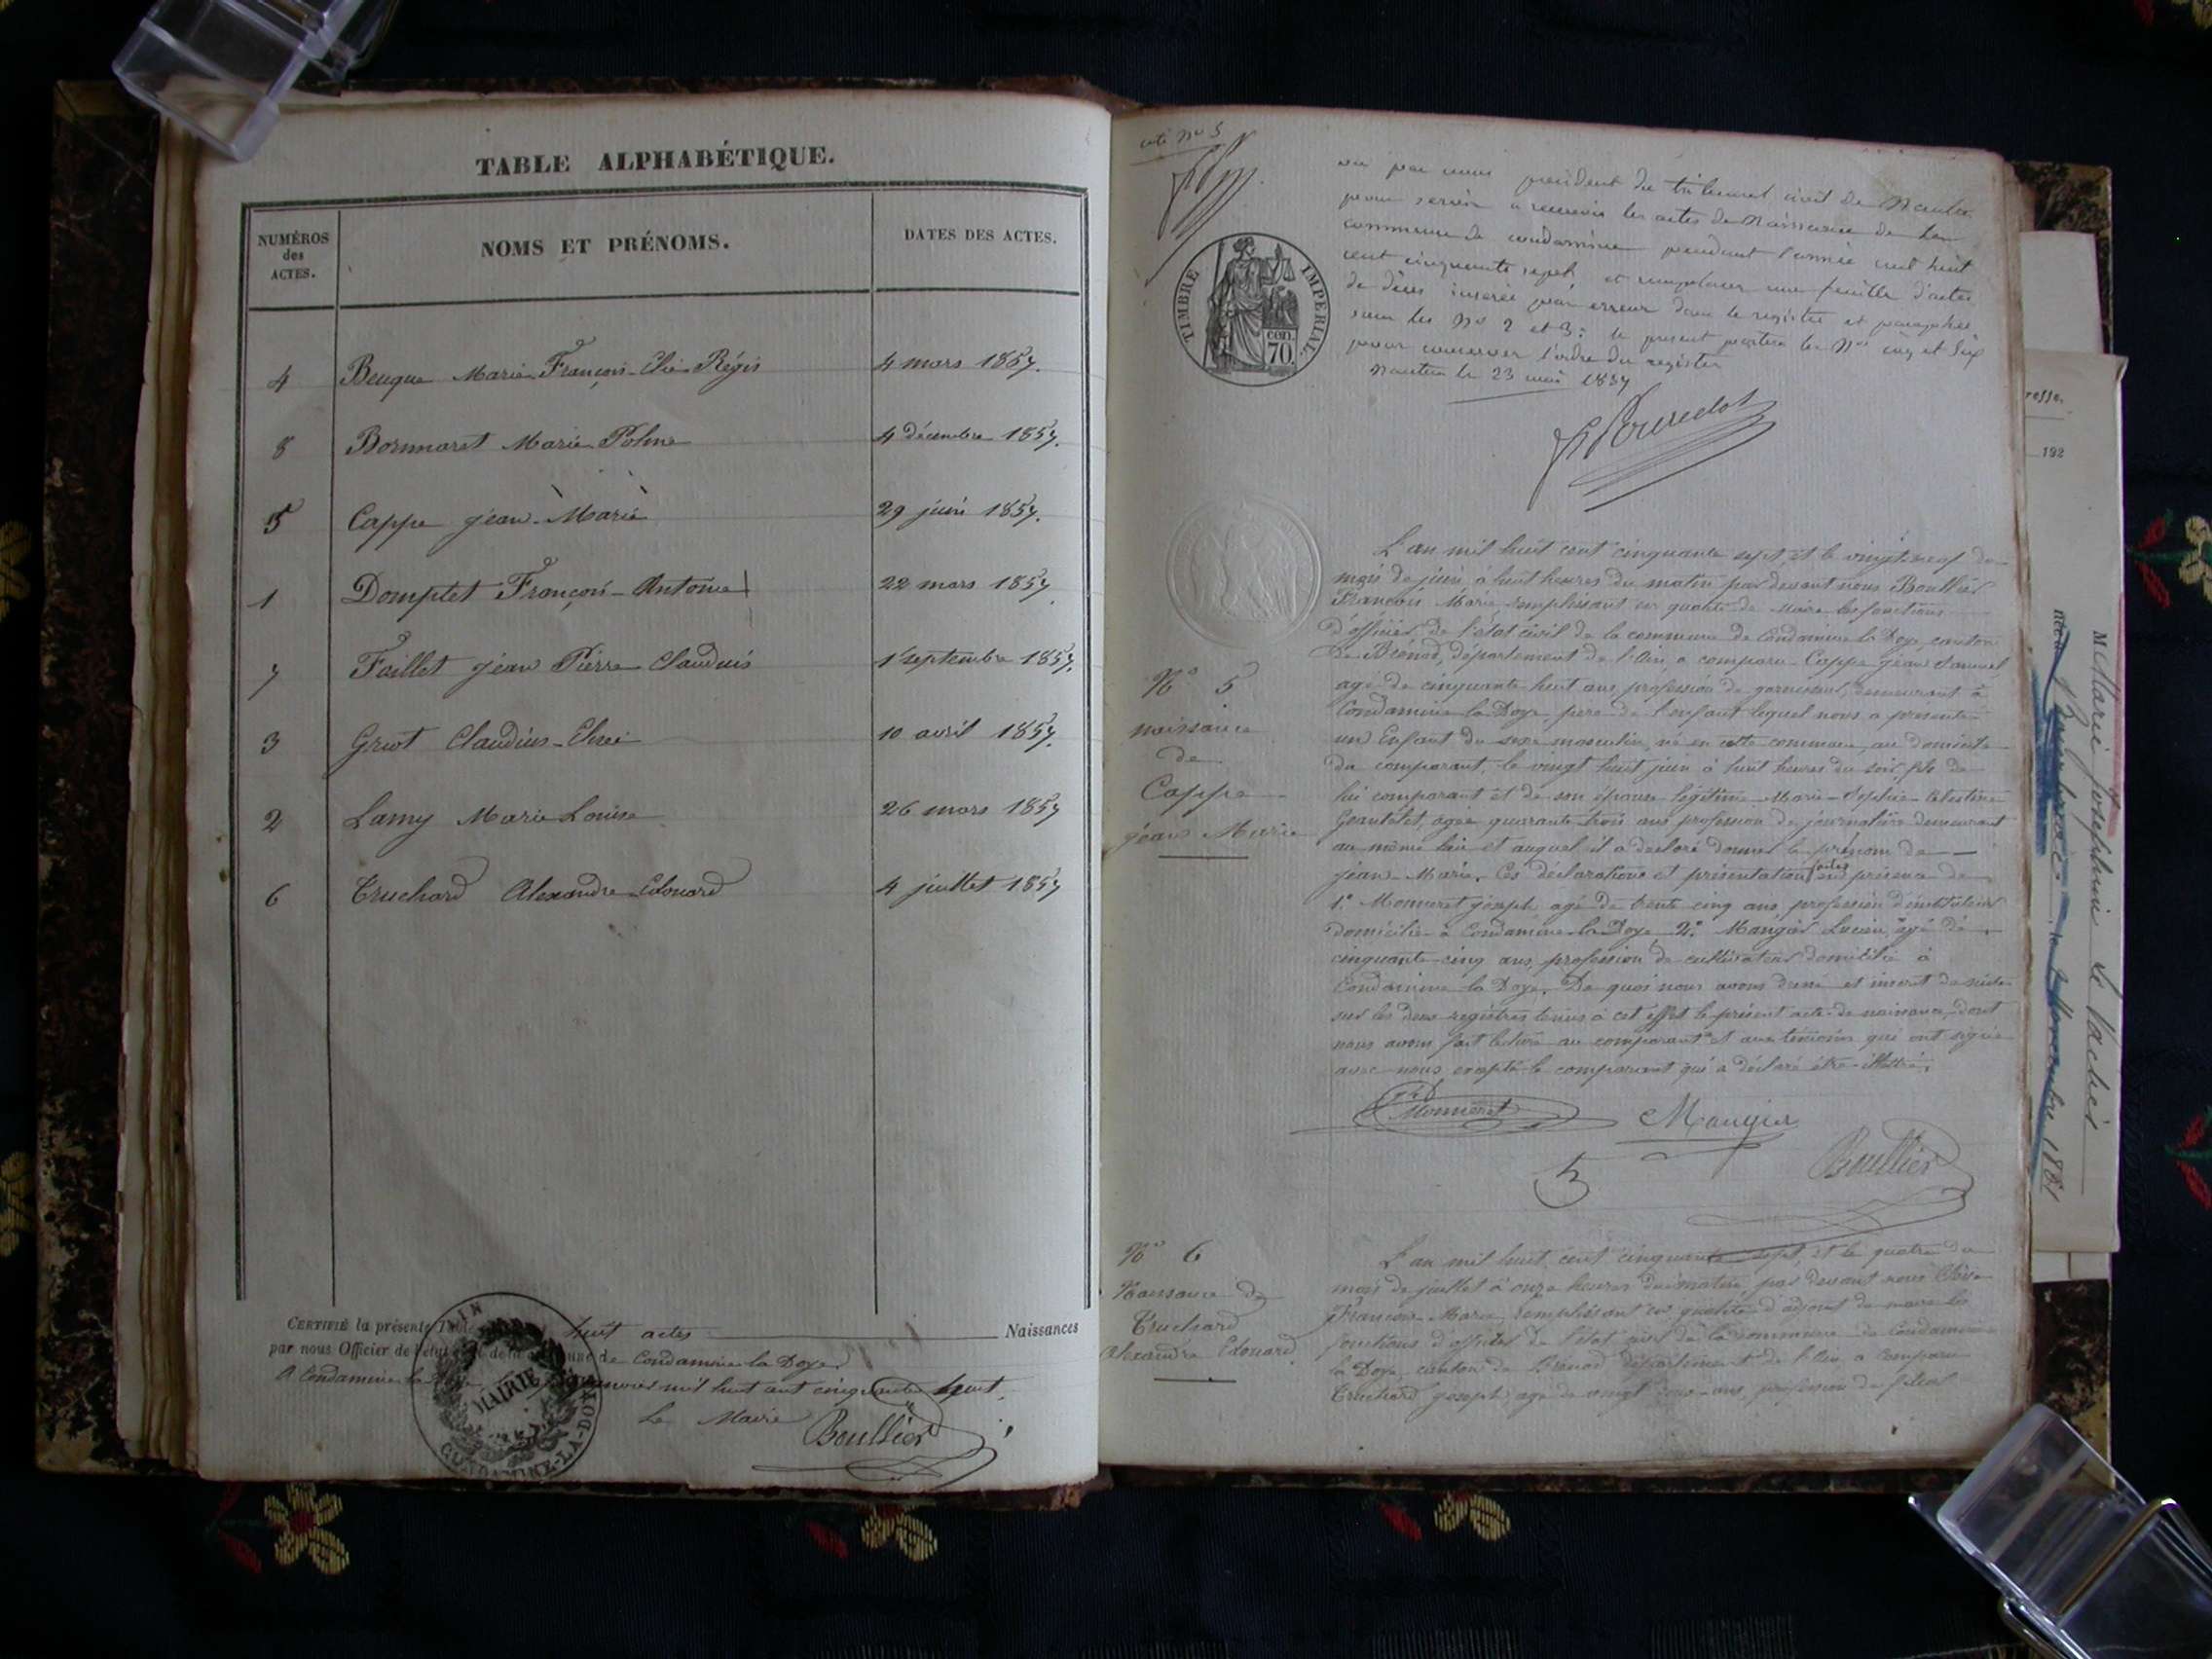 TABLE ALPHABÉTIQUE.
NUMÉROS
des
ACTES.
NOMS ET PRÉNOMS.
DATES DES ACTES.
4 Beuque Marie François Elie Régis 4 mars 1857.
8 Bornmaret Marie Polme 4 décembre 1857.
5 Cappe jean Marie 29 juin 1857.
1 Domptet François Antoine 22 mars 1857.
7 Faillet jean Pierre Claudius 1 septembre 1857.
3 Griot Claudius 10 avril 1857.
2 Lamy Marie Louise 26 mars 1857
6 Truchard Alexandre Edouard 4 juillet 1857
CERTIFIÉ la présente huit actes Naissances
par nous Officier de l'état de Condamine la Doye
A Condamine la mil huit cent cinquante huit.
Le Maire
Boullier
MAIRIE
CONDAMINE-LA-DOYE
coté No 5
TIMBRE IMPÉRIAL.
CEN.
70.
par nous président du tribunal civil de Nantua
pour servir à recevoir les actes de Naissance de la
commune de condamine pendant l'année mil huit
cent cinquante sept et remplacer une feuille d'actes
de décès insérée par erreur dans le registre et paraphée
sous les Nos 2 et 3: le present portera les Nos cinq et six
pour conserver l'ordre du registre
Nantua le 23 mai 1857
No 5
naissance
de
Cappe
jean Marie
L'an mil huit cent cinquante sept, et le vingt neuf du
mois de juin à huit heures du matin par devant nous Boullier
François Marie remplissant en qualité de Maire les fonctions
d'officier de l'état civil de la commune de Condamine la Doye, canton
de Brenod, département de l'Ain, a comparu Cappe jean Samuel
agé de cinquante huit ans, profession de demeurant à
Condamine la Doye, père de l'enfant lequel nous a présenté
un Enfant du sexe masculin, né en cette commune, au domicile
du comparant, le vingt huit juin à huit heures du soir, fils de
lui comparant et de son épouse légitime Marie Sophie Célestine
Jeantet, agée quarante trois ans profession de journalière demeurant
au même lieu et auquel il a déclaré donner le prénom de
jean Marie. Ces déclarations et présentation faites en présence de
1° Monneret joseph agé de trente cinq ans, profession d'instituteur
domicilié à Condamine la Doye, 2° Mangier Lucien, agé de
cinquante cinq ans, profession de cultivateur domicilié à
Condamine la Doye. De quoi nous avons dressé et inscrit de suite
sur les deux registres tenus à cet effet le présent acte de naissance, dont
nous avons fait lecture au comparant et aux témoins qui ont signé
avec nous excepté le comparant qui a déclaré être illettré.
Monneret
Mangier
Boullier
5
No 6
Naissance de
Truchard
Alexandre Edouard
L'an mil huit cent cinquante sept, et le quatre du
mois de juillet à onze heures du matin, par devant nous
François Marie, remplissant en qualité d'adjoint de maire les
fonctions d'officier de l'état civil de la commune de Condamine
la Doye, canton de Brenod département de l'Ain, a comparu
Truchard joseph, agé de vingt ans, profession de
resse,
192
Marie joséphine
Novembre 1881